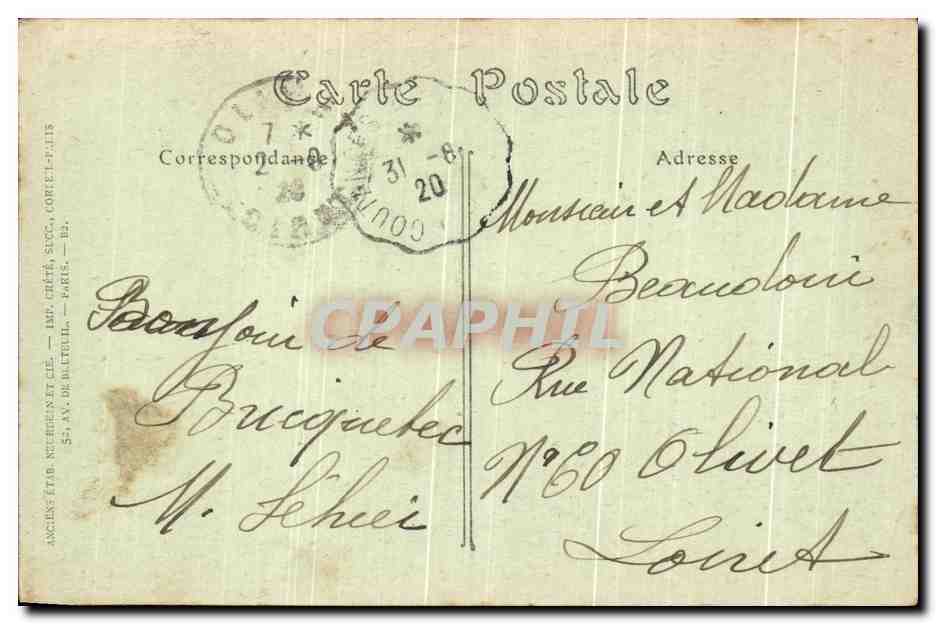 Carte Postale
Correspondance
Adresse
7 *
31 -8
20
Monsieur et Madame
Beaudoin
Rue National
N° 60 Olivet
Loiret
Bonjour de
Bricquebec
M.
CPAPHIL
ANCIENS ÉTAB. NEURDEIN ET CIE. — IMP. CRÉTÉ, SUCC., CORBEIL-PARIS
52, AV. DE BRETEUIL. — PARIS. — B2.